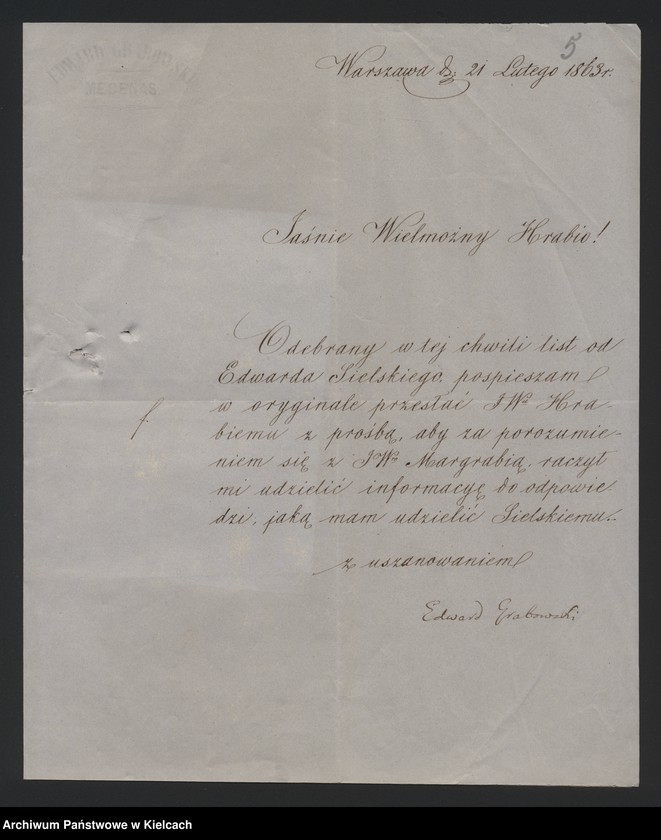 EDWARD GRABOWSKI
MECENAS
5
Warszawa d. 21 Lutego 1863 r.
Jaśnie Wielmożny Hrabio!
Odebrany w tej chwili list od
Edwarda Sielskiego, pospieszam
w oryginale przesłać JWu Hra-
biemu z prośbą, aby za porozumie-
niem się z JWm Margrabią, raczył
mi udzielić informacyę do odpowie-
dzi, jaką mam udzielić Sielskiemu.-
z uszanowaniem
Edward Grabowski
Archiwum Państwowe w Kielcach